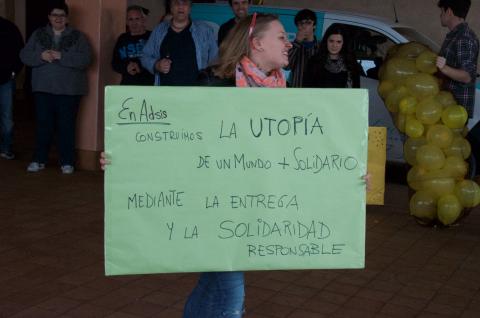 En Adsis
CONSTRUIMOS LA UTOPÍA
DE UN MUNDO + SOLIDARIO
MEDIANTE LA ENTREGA
Y LA SOLIDARIDAD
RESPONSABLE